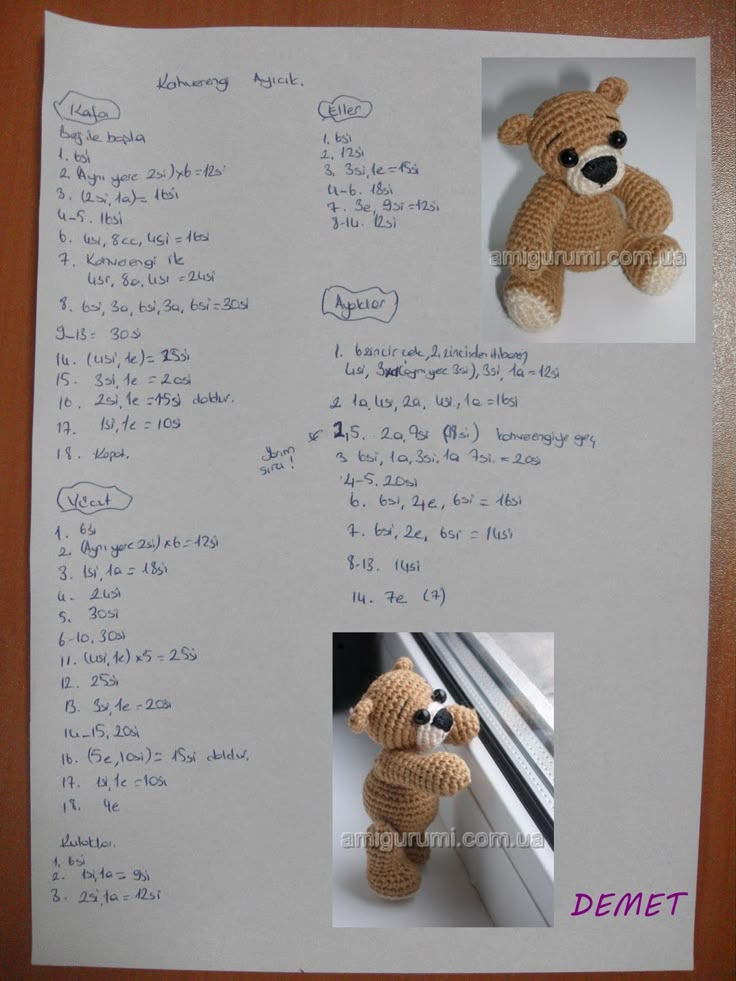 Kahverengi Ayıcık.
Kafa
Bej ile başla
1. 6si
2. (Aynı yere 2si)x6=12si
3. (2si, 1a)= 16si
4-5. 16si
6. 4si, 8cc, 4si = 16si
7. Kahverengi ile
4si, 8a, 4si = 24si
8. 6si, 3a, 6si, 3a, 6si = 30si
9-13 = 30si
14. (4si, 1e) = 25si
15. 3si, 1e = 20si
16. 2si, 1e = 15si doldur.
17. 1si, 1e = 10si
18. Kapat.
Vücut
1. 6si
2. (Aynı yere 2si)x6=12si
3. 1si, 1a = 18si
4. 24si
5. 30si
6-10. 30si
11. (4si, 1e)x5 = 25si
12. 25si
13. 3si, 1e = 20si
14-15, 20si
16. (5e, 10si) = 15si doldur.
17. 1si, 1e = 10si
18. 4e
Kulaklar.
1. 6si
2. 1si, 1a = 9si
3. 2si, 1a = 12si
Eller
1. 6si
2. 12si
3. 3si, 1e = 15si
4-6. 18si
7. 3e, 9si = 12si
8-14. 12si
Ayaklar
1. 6 zincir çek, 2. zincirden itibaren
4si, (aynı yere 3si), 3si, 1a = 12si
2 1a, 4si, 2a, 4si, 1a = 16si
yarım
sıra!
2,5. 2a, 7si (18si) kahverengiye geç
3 6si, 1a, 3si, 1a 7si. = 20si
4-5. 20si
6. 6si, 4e, 6si = 16si
7. 6si, 2e, 6si = 14si
8-13. 14si
14. 7e (7)
amigurumi.com.ua
amigurumi.com.ua
DEMET